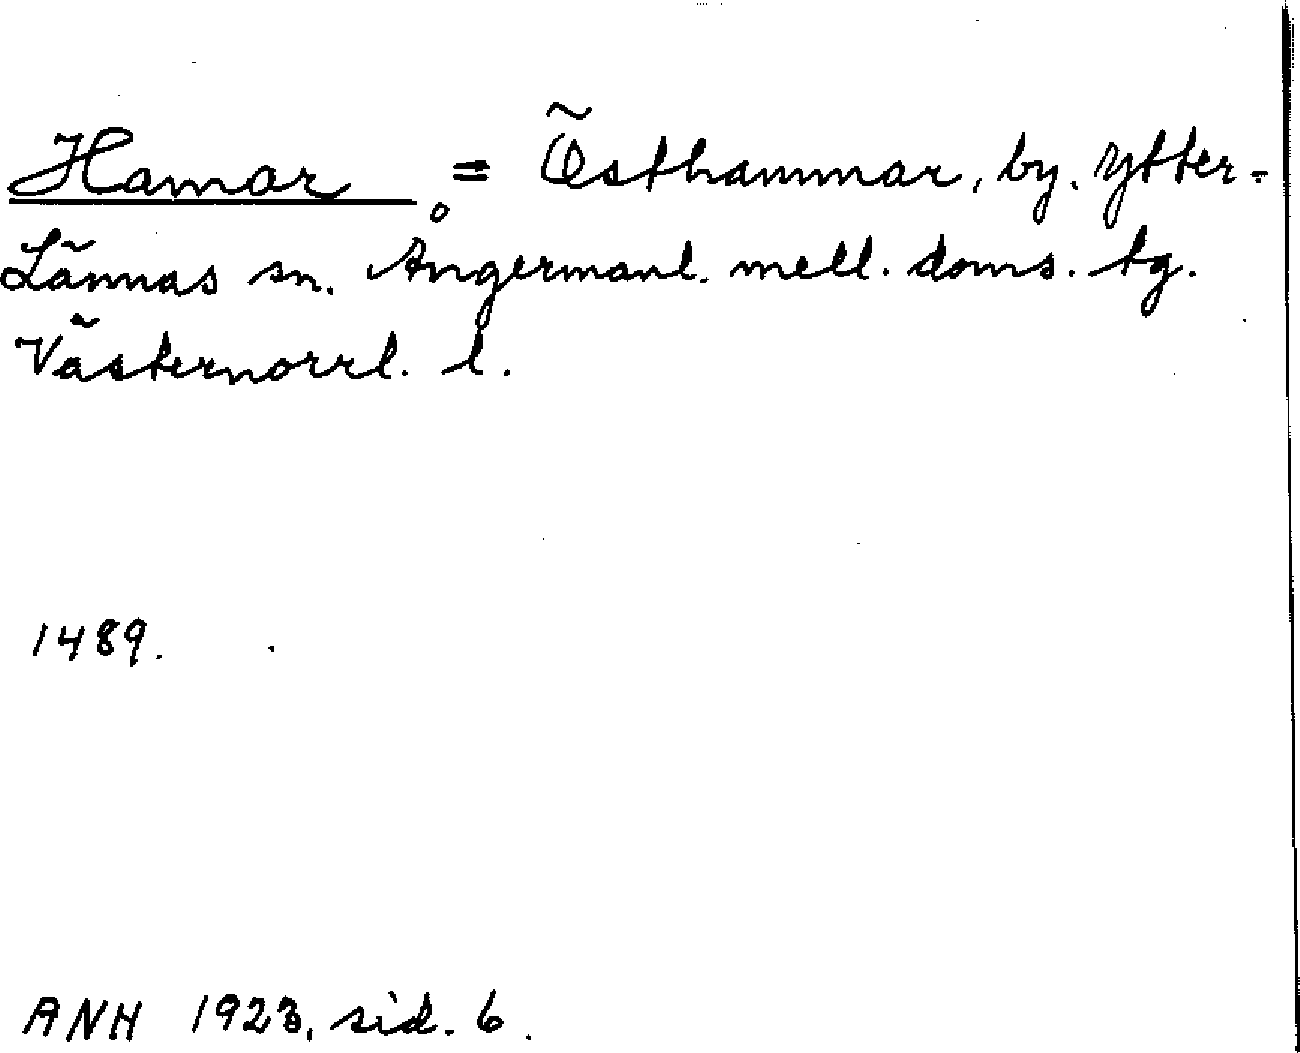 Hamar = Östhammar, by. Ytter-
Lännäs sn. Ångermanl. mell. doms. tg.
Västernorrl. l.
1489.
ANH 1923, sid. 6.